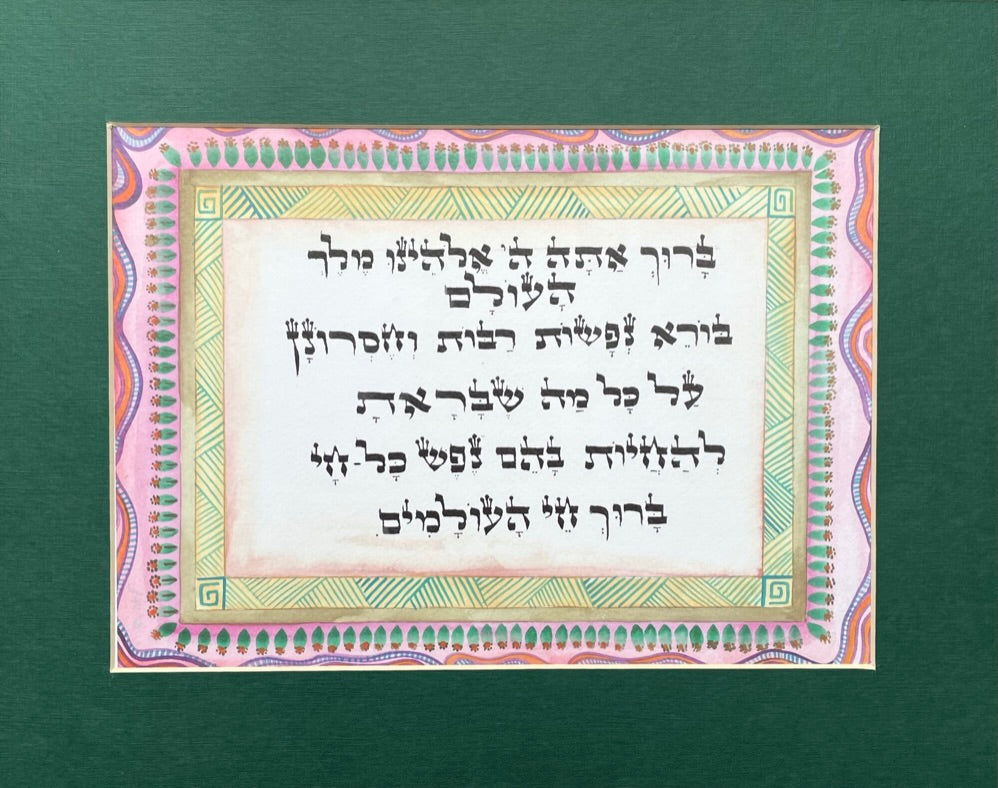 בָּרוּךְ אַתָּה ה' אֱלֹהֵינוּ מֶלֶךְ
הָעוֹלָם
בּוֹרֵא נְפָשׁוֹת רַבּוֹת וְחֶסְרוֹנָן
עַל כָּל מַה שֶּׁבָּרָאתָ
לְהַחֲיוֹת בָּהֶם נֶפֶשׁ כָּל-חָי
בָּרוּךְ חֵי הָעוֹלָמִים.